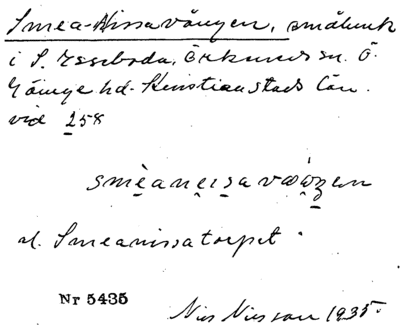 Smea-Nissavången, småbruk
i S. Esseboda, Örkened sn. Ö.
Göinge hd. Kristianstads län.
vid 258
al. Smeanissatorpet.
Nr 5435
Nils Nilsson 1935.